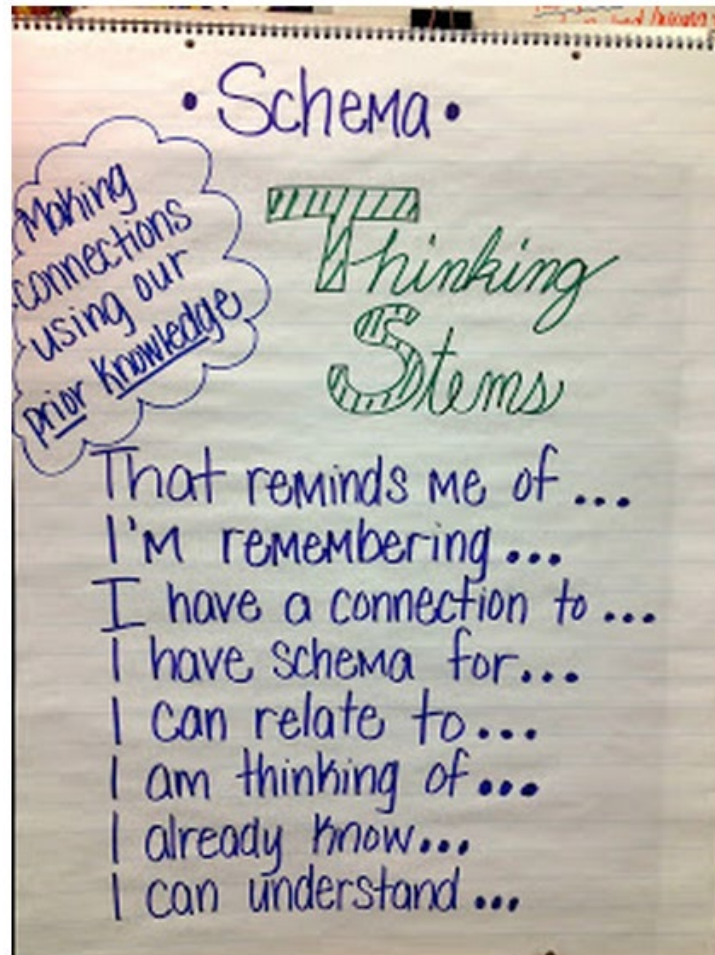 • Schema •
Making
connections
using our
prior Knowledge
Thinking
Stems
That reminds me of...
I'm remembering...
I have a connection to...
I have schema for...
I can relate to...
I am thinking of...
I already know...
I can understand...